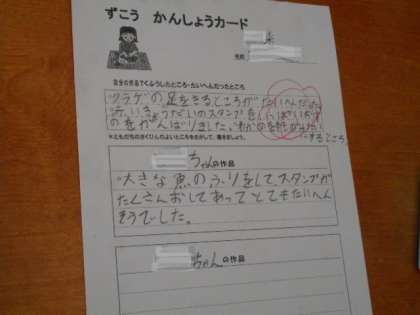 ずこう かんしょうカード
名前
自分の作品でくふうしたところ・たいへんだったところ
クラゲの足をきるところがたいへんだった。
スタンプを
のをがんばりました。
にするところ
※ともだちのさくひんのよいところをさがして、書きましょう。
ちゃんの作品
大きな魚のふりをして、スタンプが
たくさんおしてあってとてもたいへん
そうでした。
ちゃんの作品